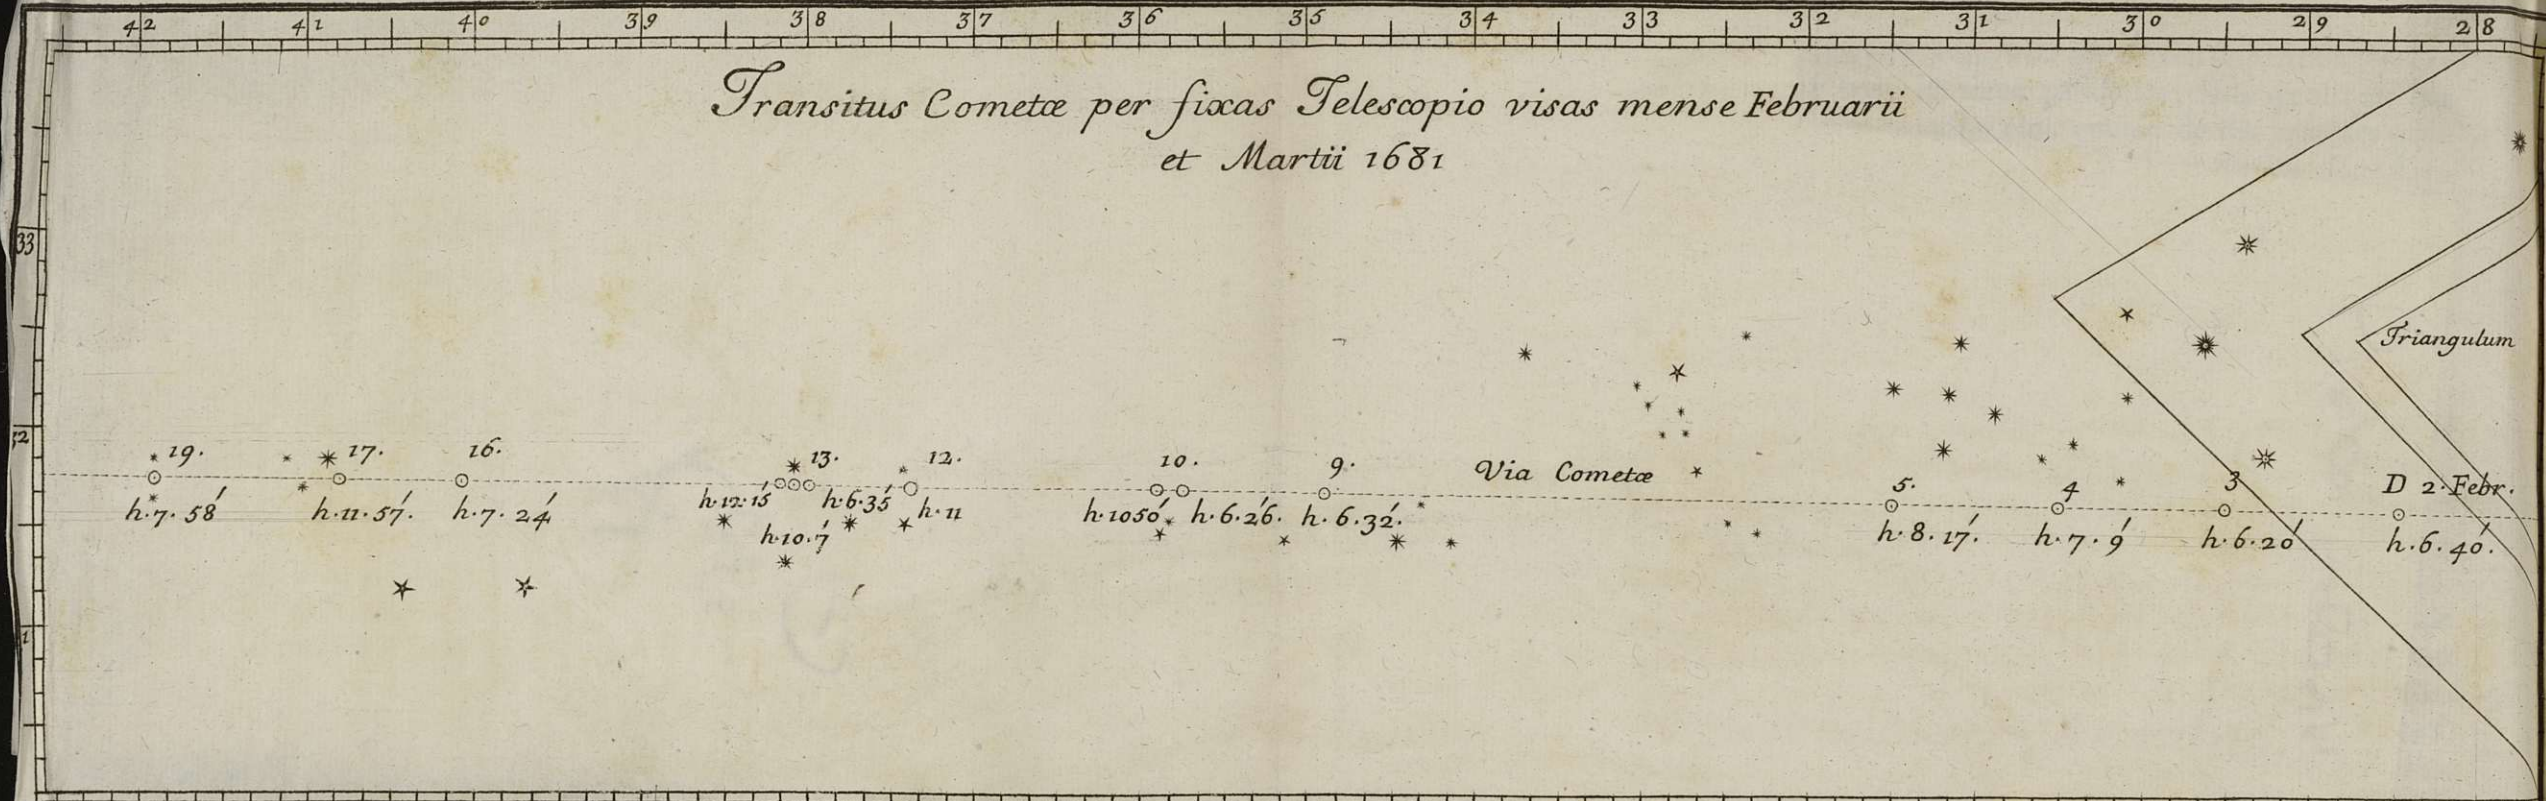 42 41 40 39 38 37 36 35 34 33 32 31 30 29 28
Transitus Cometæ per fixas Telescopio visas mense Februarii
et Martii 1681
33
Triangulum
32
19. 17. 16. 13. 12. 10. 9. Via Cometæ 5. 4 3 D 2. Febr.
h. 7. 58' h. 11. 57'. h. 7. 24' h. 12. 15' h. 6. 35' h. 11 h. 10 50' h. 6. 26'. h. 6. 32'. h. 8. 17'. h. 7. 9' h. 6. 20' h. 6. 40'.
h. 10. 7'
1